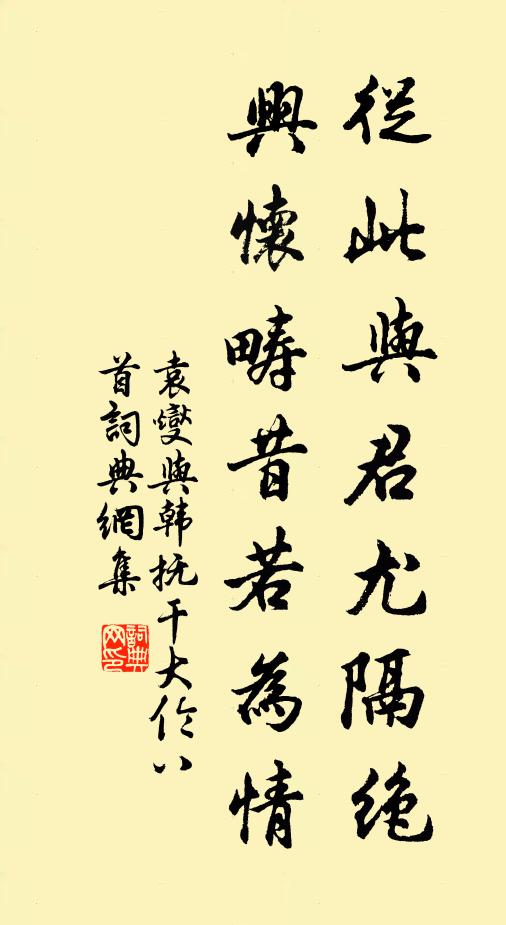 從此與君尤隔絕
興懷疇昔若為情
袁燮與韩抚干大伦八
首詞典網集
詞典網印